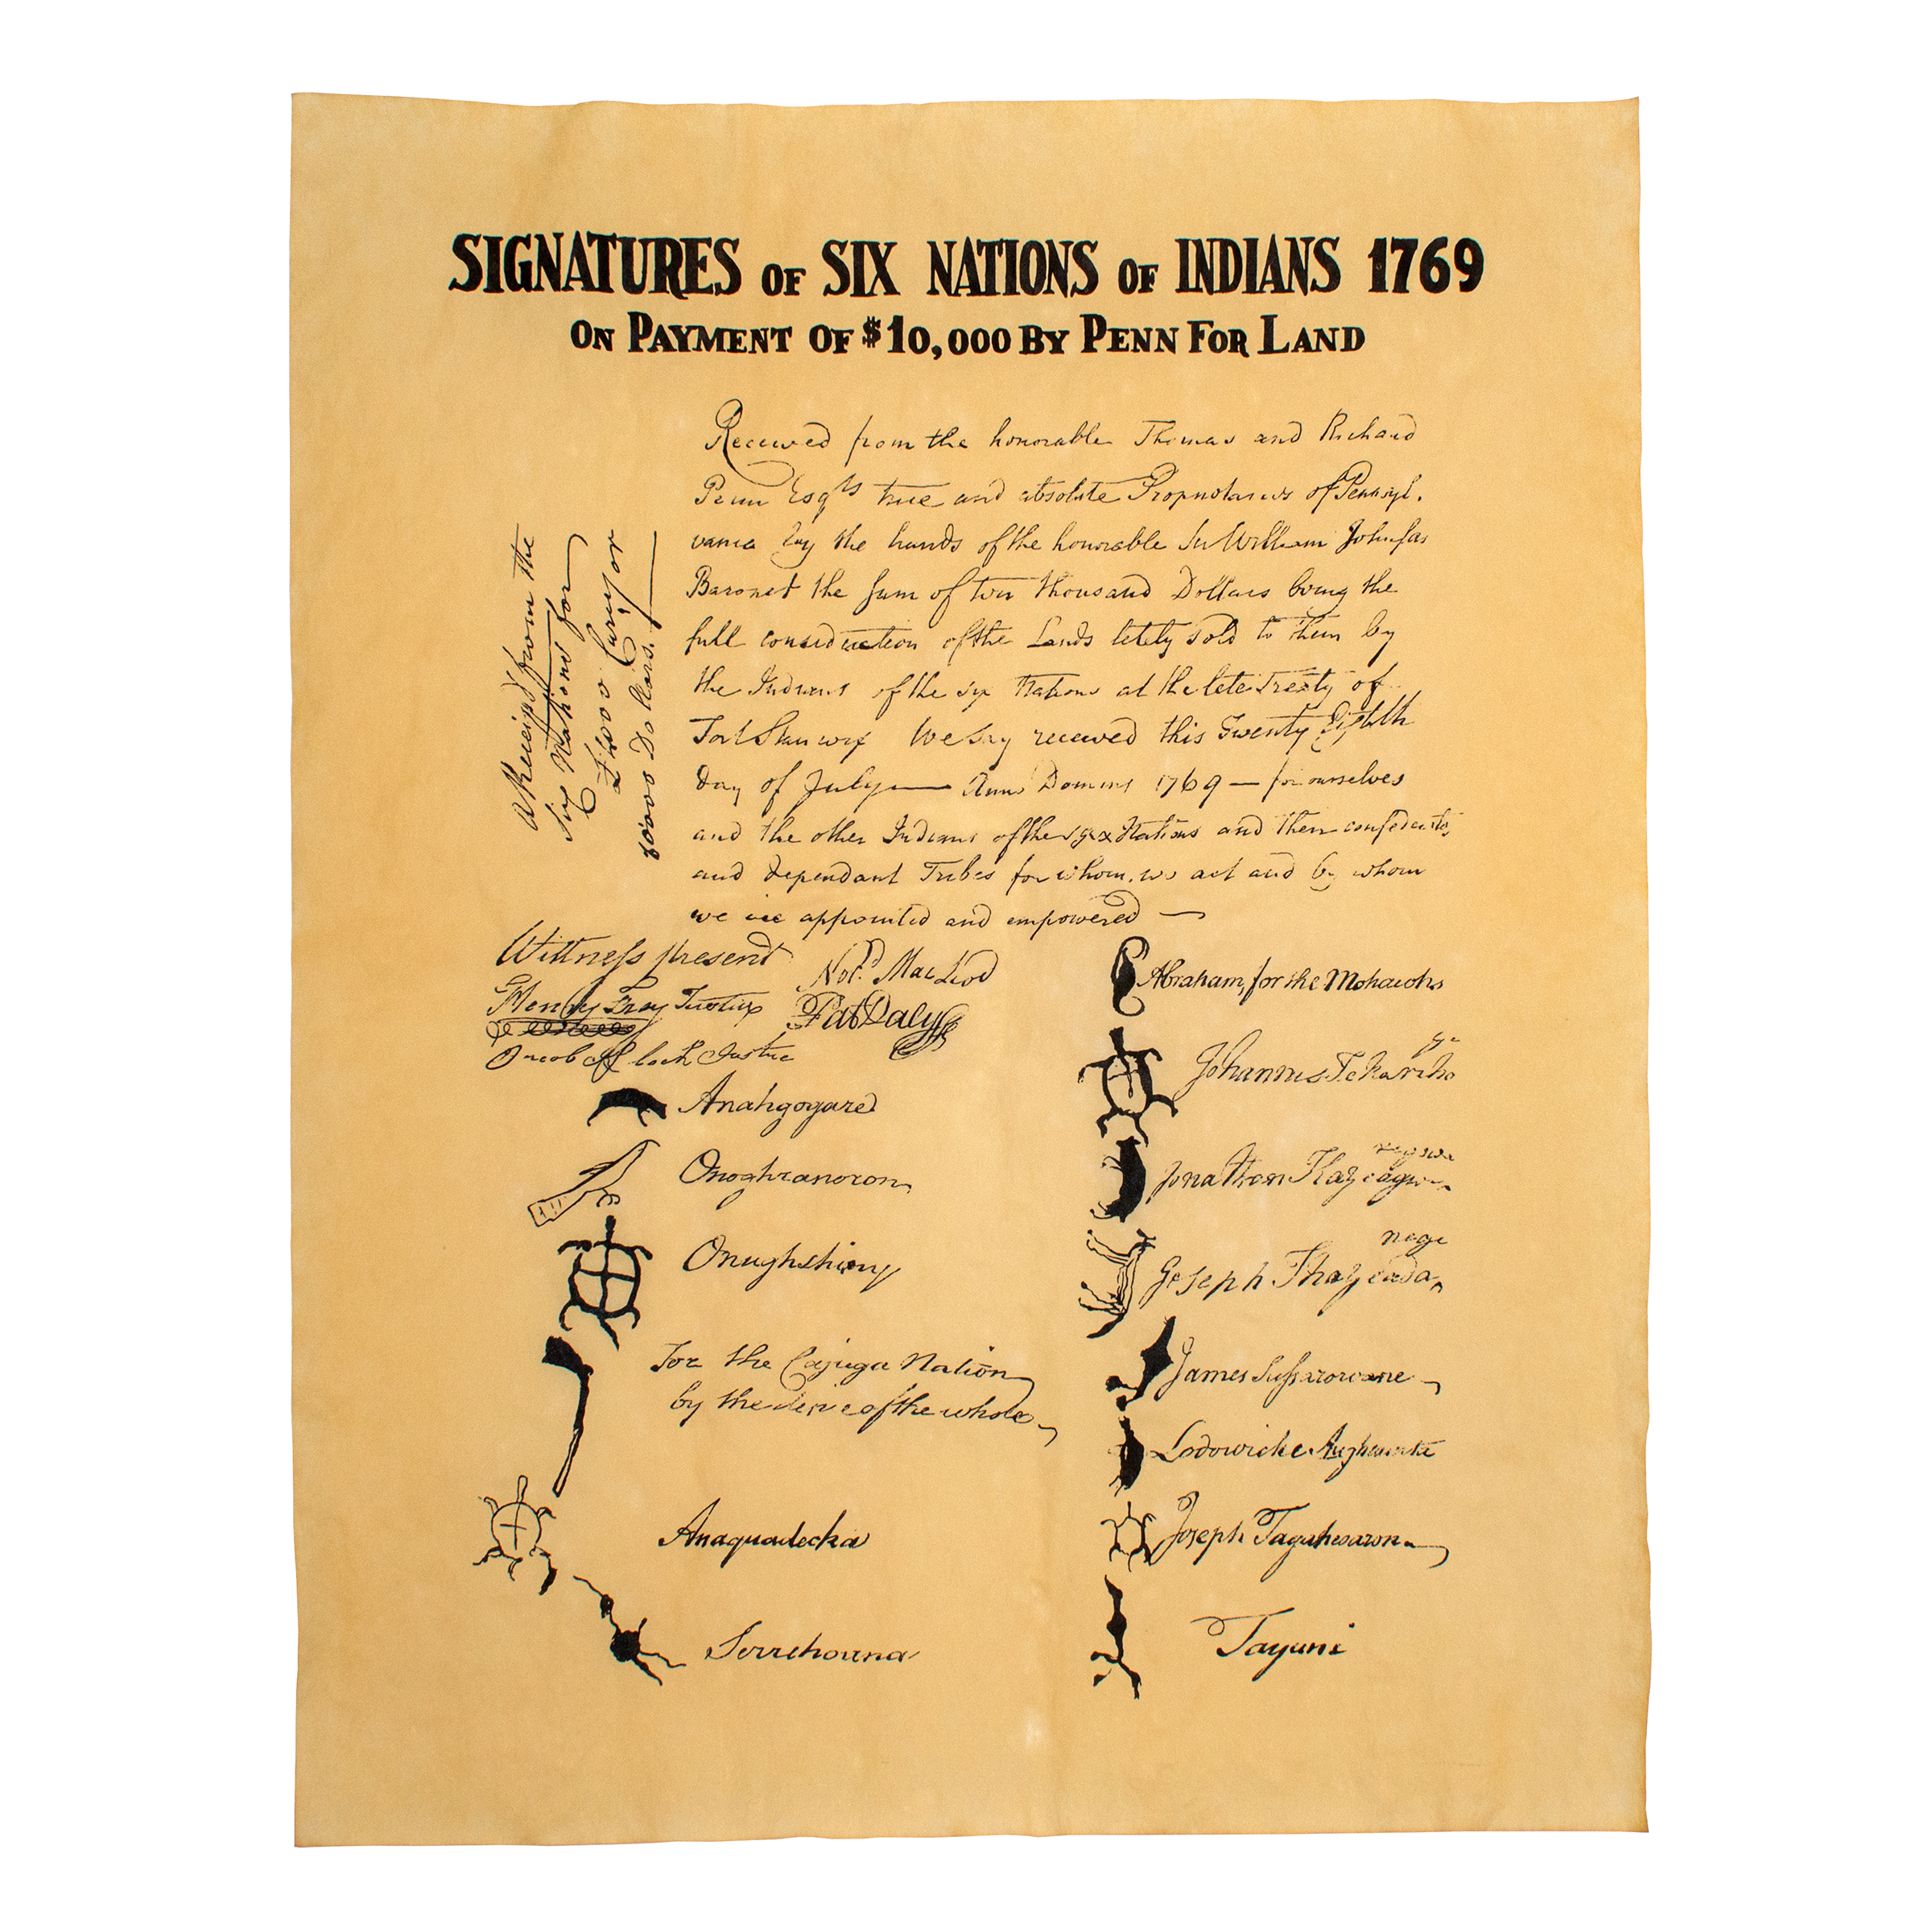 SIGNATURES OF SIX NATIONS OF INDIANS 1769
ON PAYMENT OF $10,000 BY PENN FOR LAND
Received from the honorable Thomas and Richard
Penn Esqrs true and absolute Proprietaries of Pennsyl.
vania by the hands of the honorable Sir William Johnson
Baronet the Sum of ten thousand Dollars being the
full consideration of the Lands lately sold to them by
the Indians of the six Nations at the late Treaty of
Fort Stanwix We say received this Twenty Eighth
Day of July — Anno Domini 1769 — for ourselves
and the other Indians of the six Nations and their confederates
and dependant Tribes for whom we act and by whom
we are appointed and empowered —
a Receipt from the
Six Nations for
Currjor
10000 Dollars.
Wittness present
Nor.d MacLeod
Henry Fray Justice
Pat Daly
Jacob Justice
Abraham, for the Mohawks
Johannes Tekariho
ga
Anahgogare
Onoghranoron
Jonathon
Onughshiony
nege
Joseph Thayeada
For the Cajuga Nation
by the desire of the whole
James
Lodowicke
Anaquadecka
Joseph Tagahesaron
Serrehoana
Tayuni